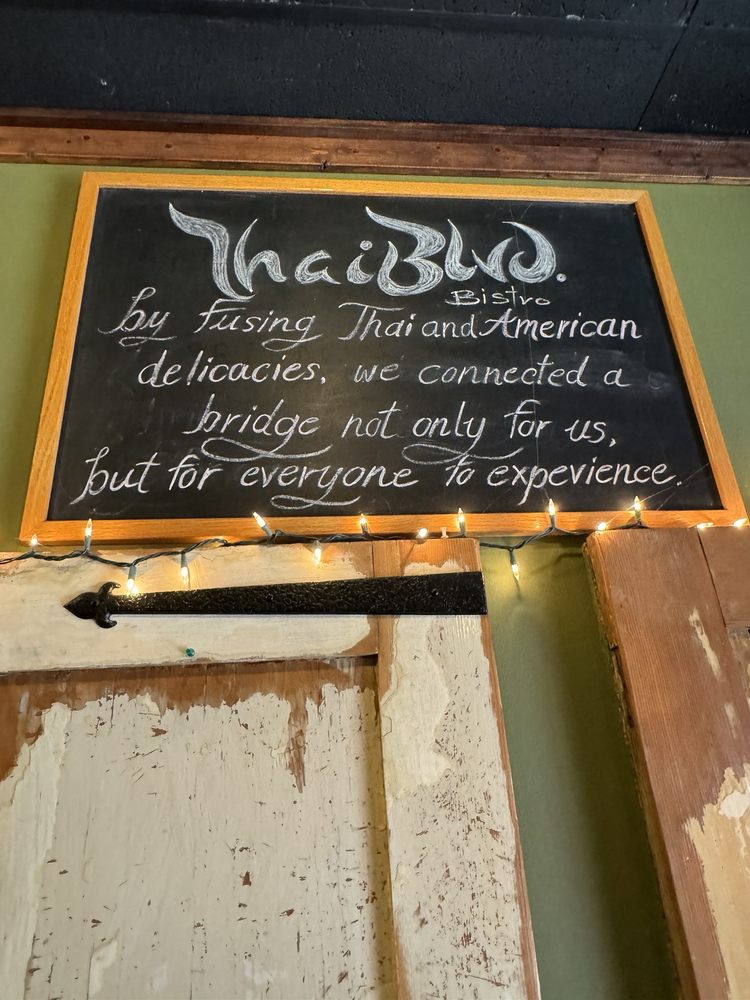 Thai Blvd.
Bistro
by fusing Thai and American
delicacies, we connected a
bridge not only for us,
but for everyone to experience.